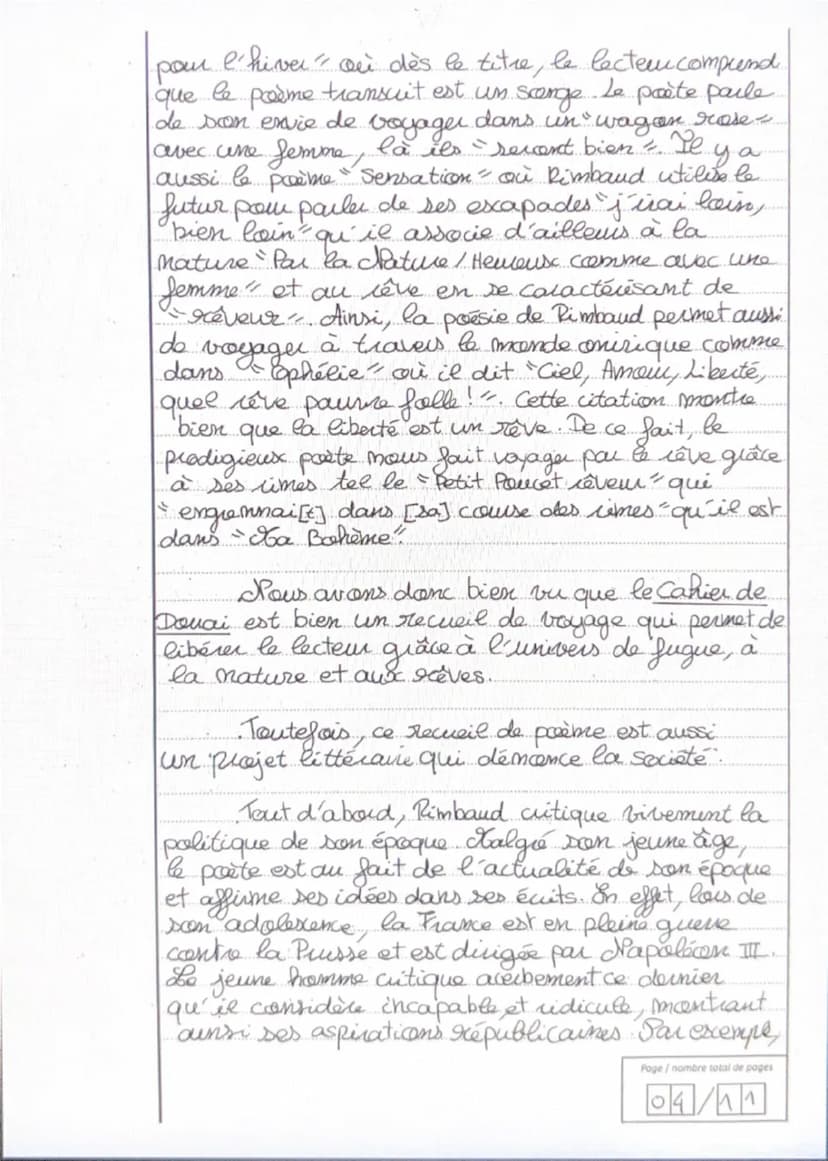 pour l'hiver" où dès le titre, le lecteur comprend
que le poème transcrit est un songe. Le poète parle
de son envie de voyager dans un "wagon rose"
avec une femme, là ils "seront bien". Il y a
aussi le poème "Sensation" où Rimbaud utilise le
futur pour parler de ses escapades "j'irai loin,
bien loin" qu'il associe d'ailleurs à la
nature "Par la Nature / Heureux comme avec une
femme" et au rêve en se caractérisant de
"rêveur". Ainsi, la poésie de Rimbaud permet aussi
de voyager à travers le monde onirique comme
dans "Ophélie" où il dit "Ciel, Amour, Liberté,
quel rêve pauvre folle!". Cette citation montre
bien que la liberté est un rêve. De ce fait, le
prodigieux poète nous fait voyager par le rêve grâce
à ses rimes tel le "Petit Poucet rêveur" qui
"engrennai[t] dans [sa] course des rimes" qu'il est
dans "Ma Bohème".
Nous avons donc bien vu que le Cahier de
Douai est bien un recueil de voyage qui permet de
libérer le lecteur grâce à l'univers de fugue, à
la nature et aux rêves.
Toutefois, ce recueil de poème est aussi
un projet littéraire qui dénonce la société.
Tout d'abord, Rimbaud critique vivement la
politique de son époque. Malgré son jeune âge,
le poète est au fait de l'actualité de son époque
et affirme ses idées dans ses écrits. En effet, lors de
son adolescence, la France est en pleine guerre
contre la Prusse et est dirigée par Napoléon III.
Le jeune homme critique acerbement ce dernier
qu'il considère incapable et ridicule, montrant
ainsi ses aspirations républicaines. Par exemple,
Page / nombre total de pages
04/11